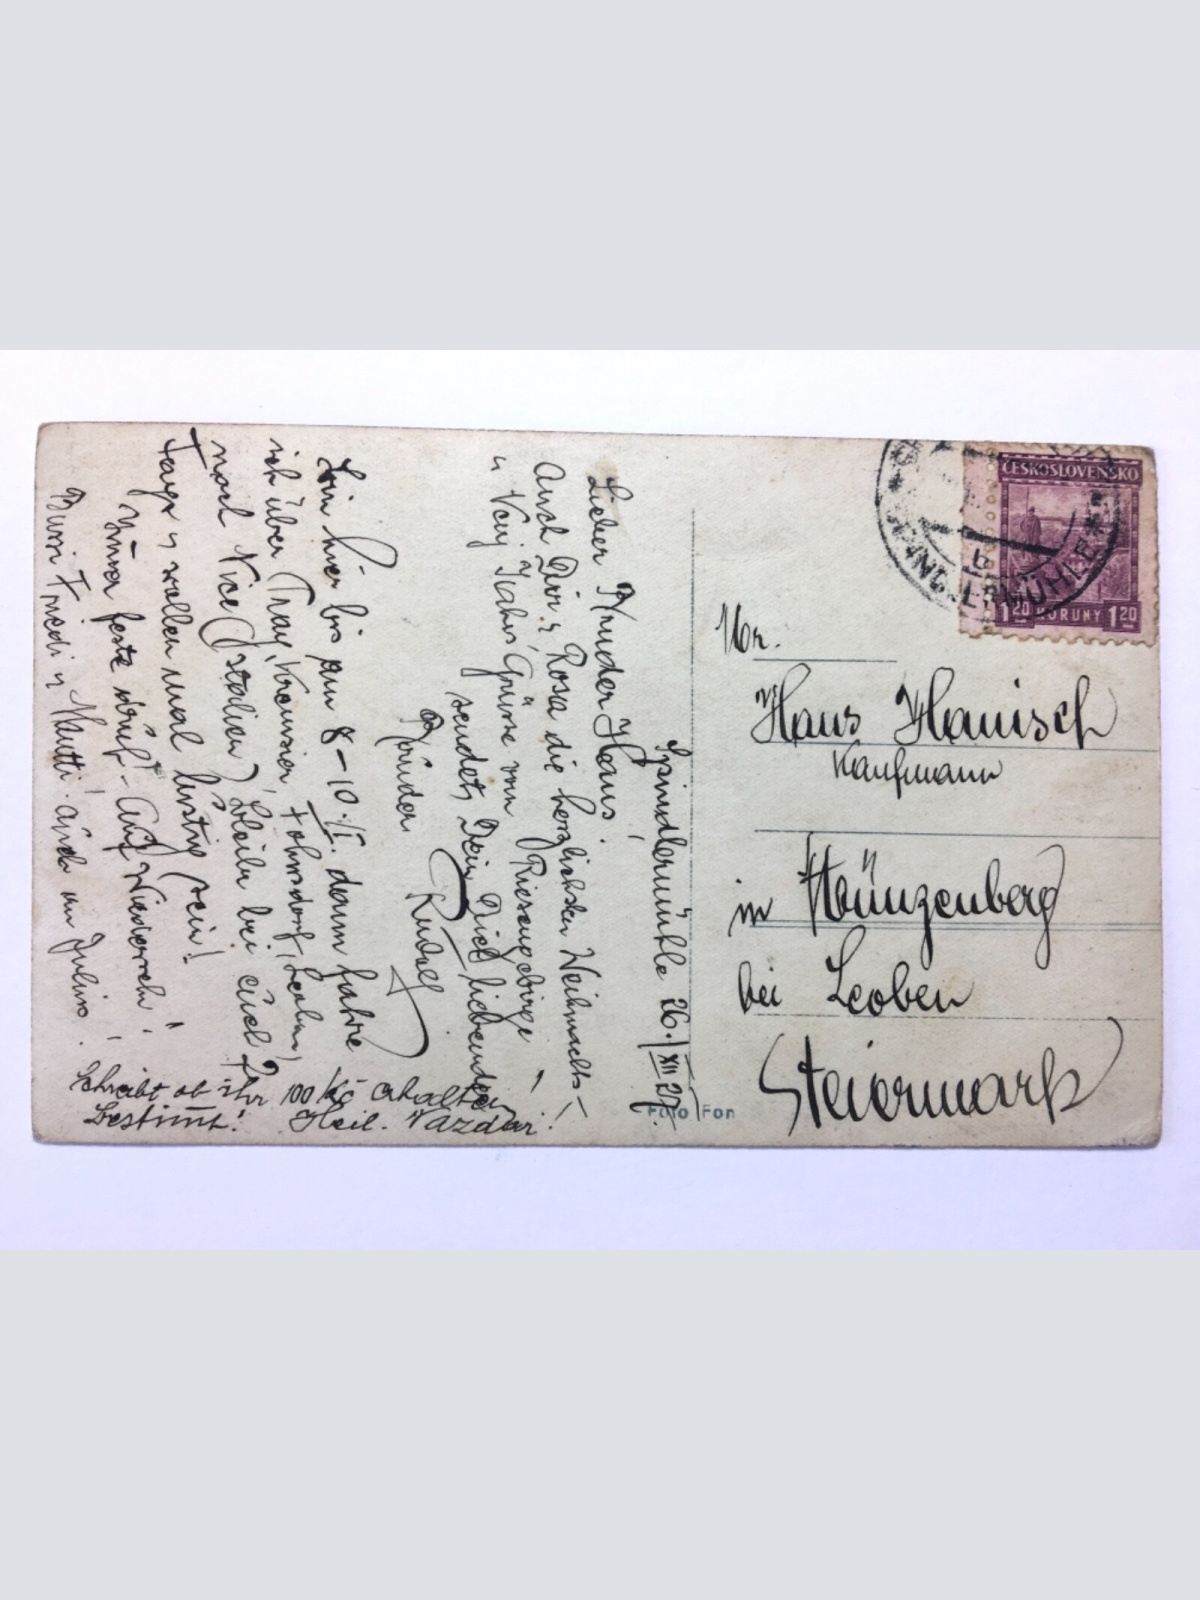 Spindlermühle 26./XII 27.
Lieber Bruder Hans!
Auch Dir u. Rosa die herzlichsten Weihnachts-
u Neuj Jahrs Grüsse vom Riesengebirge!
sendet, Dein Dich liebender
Bruder Rudolf
bin hier bis zum 8-10./I. dann fahre
ich über Prag, Kremsier, Leoben,
nach Nice (Italien) bleibe bei euch 2
Tage u wollen mal lustig sein!
Immer feste drauf - Auf Wiederseh'n!
Bussi Friedi u Mutti. auch an Julius!
Schreibt ob ihr 100 Kč erhalten
bestimmt! Heil. Nazdar!
Foto Fon
ČESKOSLOVENSKO
1.20 KORUNY 1.20
SPINDLERMÜHLE
b
Hr.
Hans Hanisch
Kaufmann
in Münzenberg
bei Leoben
Steiermark